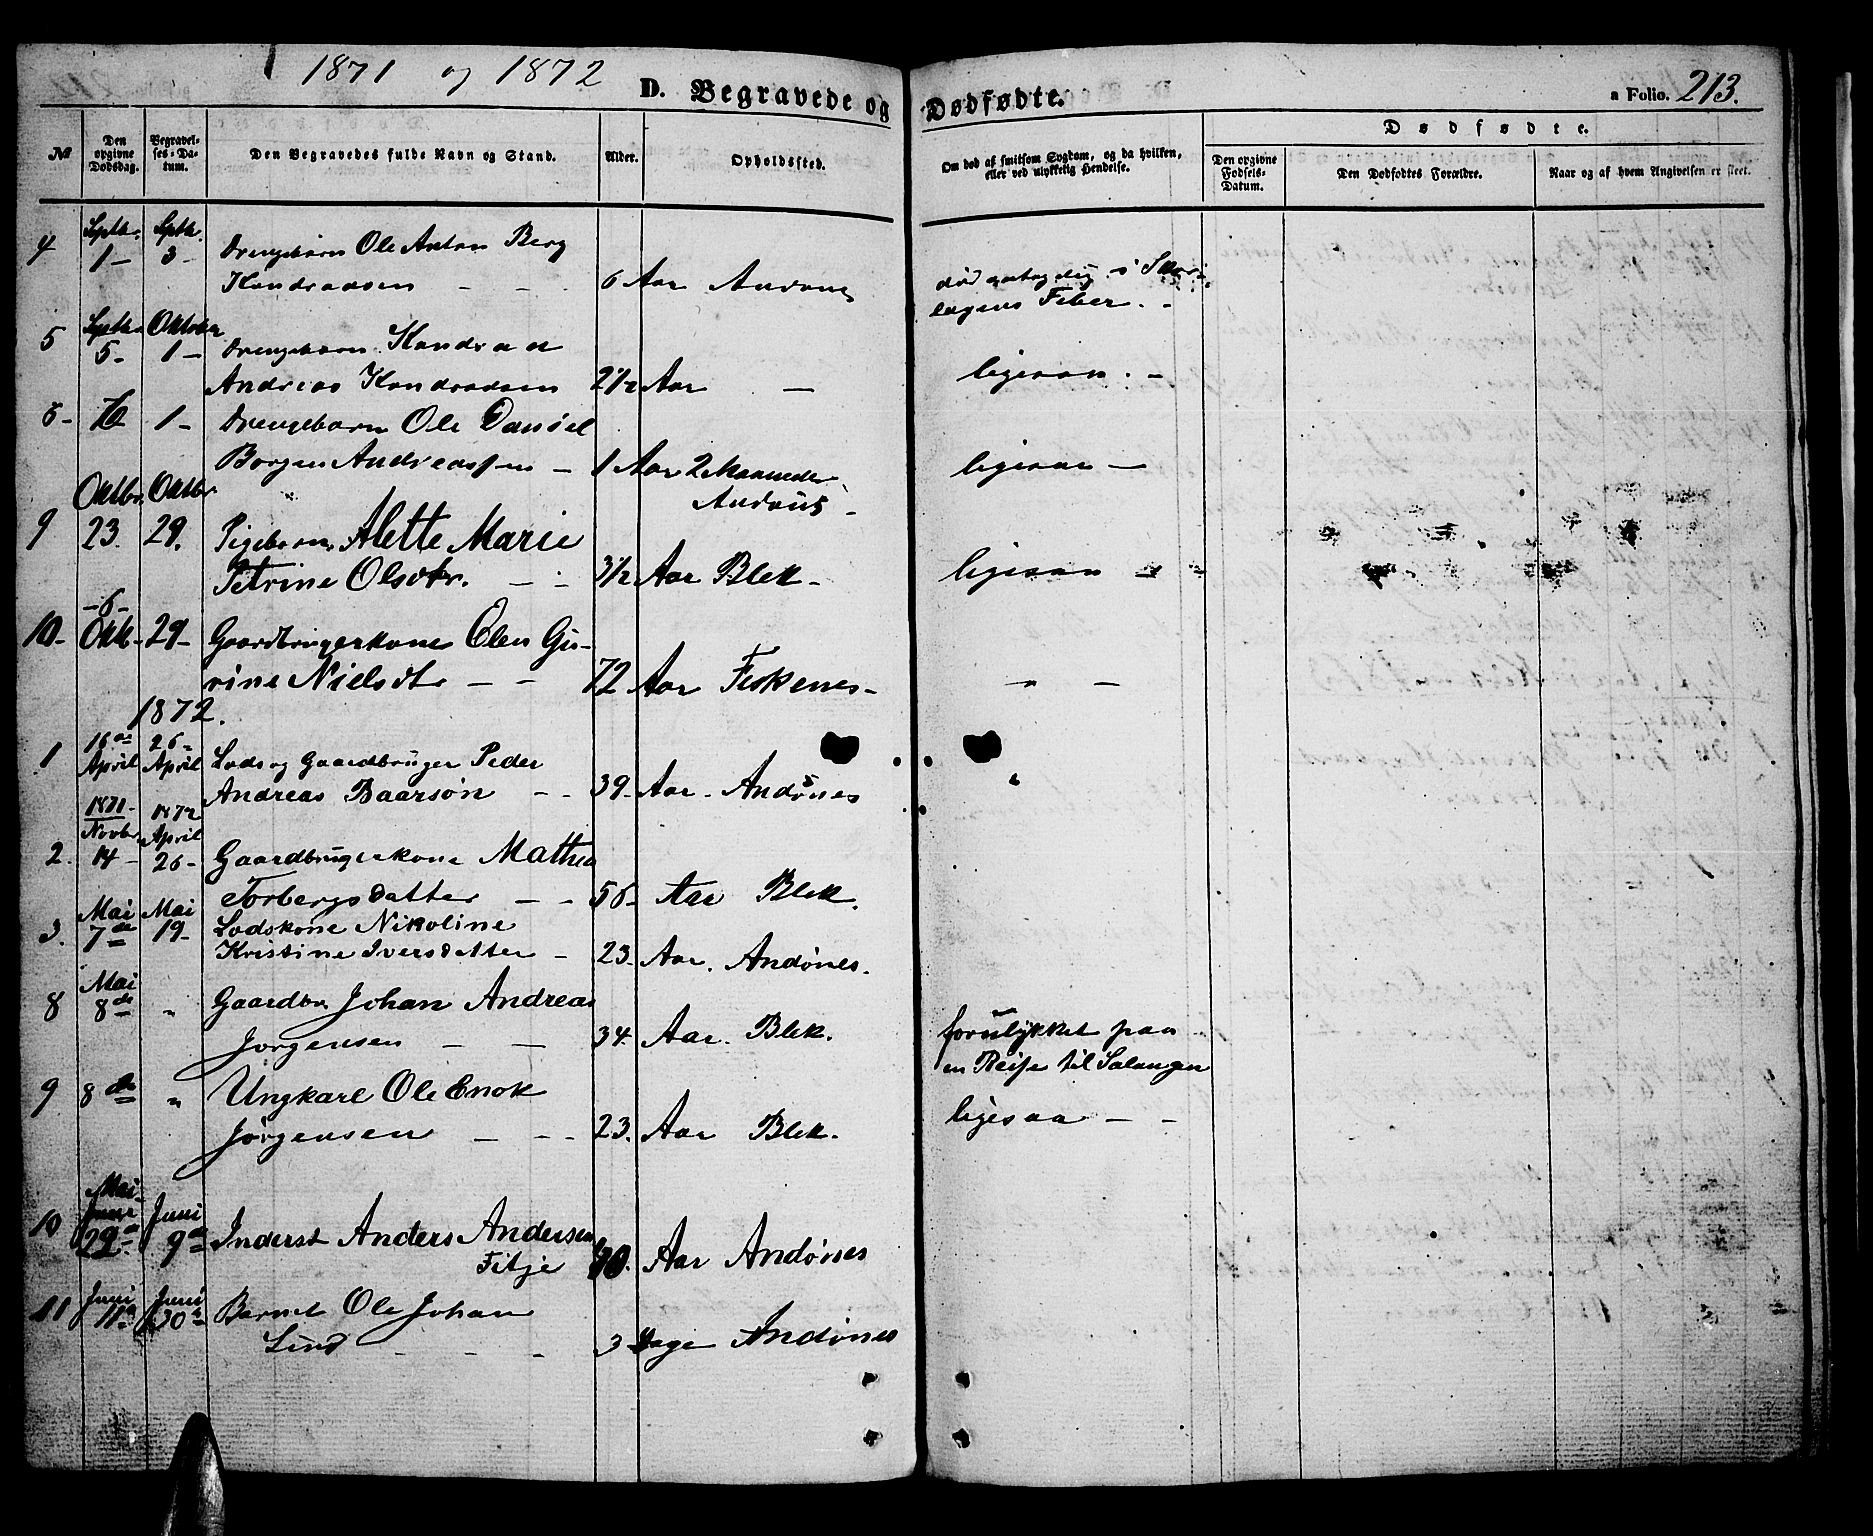 1871 og 1872 D. Begravede og Dødfødte. a Folio. 213.
№
Den opgivne Dødsdag.
Begravelses-Datum.
Den Begravedes fulde Navn og Stand.
Alder.
Opholdssted.
Om død af smitsom Sygdom, og da hvilken, eller ved ulykkelig Hendelse.
Dødfødte.
Den opgivne Fødsels-Datum.
Den Dødfødtes Forældre.
Naar og af hvem Angivelsen er sket.
4 Septbr. 1 – Septb. 3 – Drengebarn Ole Anton Berg
Kondradsen – – 6 Aar Andønes
Feber. –
5 Septbr. 5 – Oktober 1 – Drengebarn Kondrad
Andreas Kondradsen 2 1/2 Aar – ligesaa. –
1 – Drengebarn Ole Daniel
Borgen Andreassen – 1 Aar 2 Maaneder ligesaa –
Andønes –
9 Oktbr. 23. Oktbr. 29. Pigebarn Alette Marie
Petrine Olsdtr. – – 3 1/2 Aar Blek – ligesaa – –
10 – – 6 – Oktb – 29 – Gaardbrugerkone Olen Gu-
rine Nielsdtr – – 72 Aar Fiskenes – – –
1872.
1 16de April 26 – April Lods og Gaardbruger Peder
Andreas Baarsøn – – 39 – Aar – Andønes "
2. 1871 – Novbr 14 – 1872 April 26 – Gaardbrugerkone Mathea
Torbergsdatter – – 56 – Aar Blek.
3. Mai 7de Mai 19 – Lodskone Nikoline
Kristine Iversdatter – 23 – Aar. Andønes.
8 Mai 8de " Gaardbr Johan Andreas
Jørgensen – – 34. Aar. Blek. forulykket paa
en Reise til Salangen
9 8de " Ungkarl Ole Enok
Jørgensen – – – 23. Aar Blek. ligesaa – –
10 Mai – Juni 29de Juni 9de Inderst Anders Andersen
Fitje 70. Aar Andønes
11 Juni 11te Juni 30te Barnet Ole Johan
Lind – – – 3 Dage Andønes